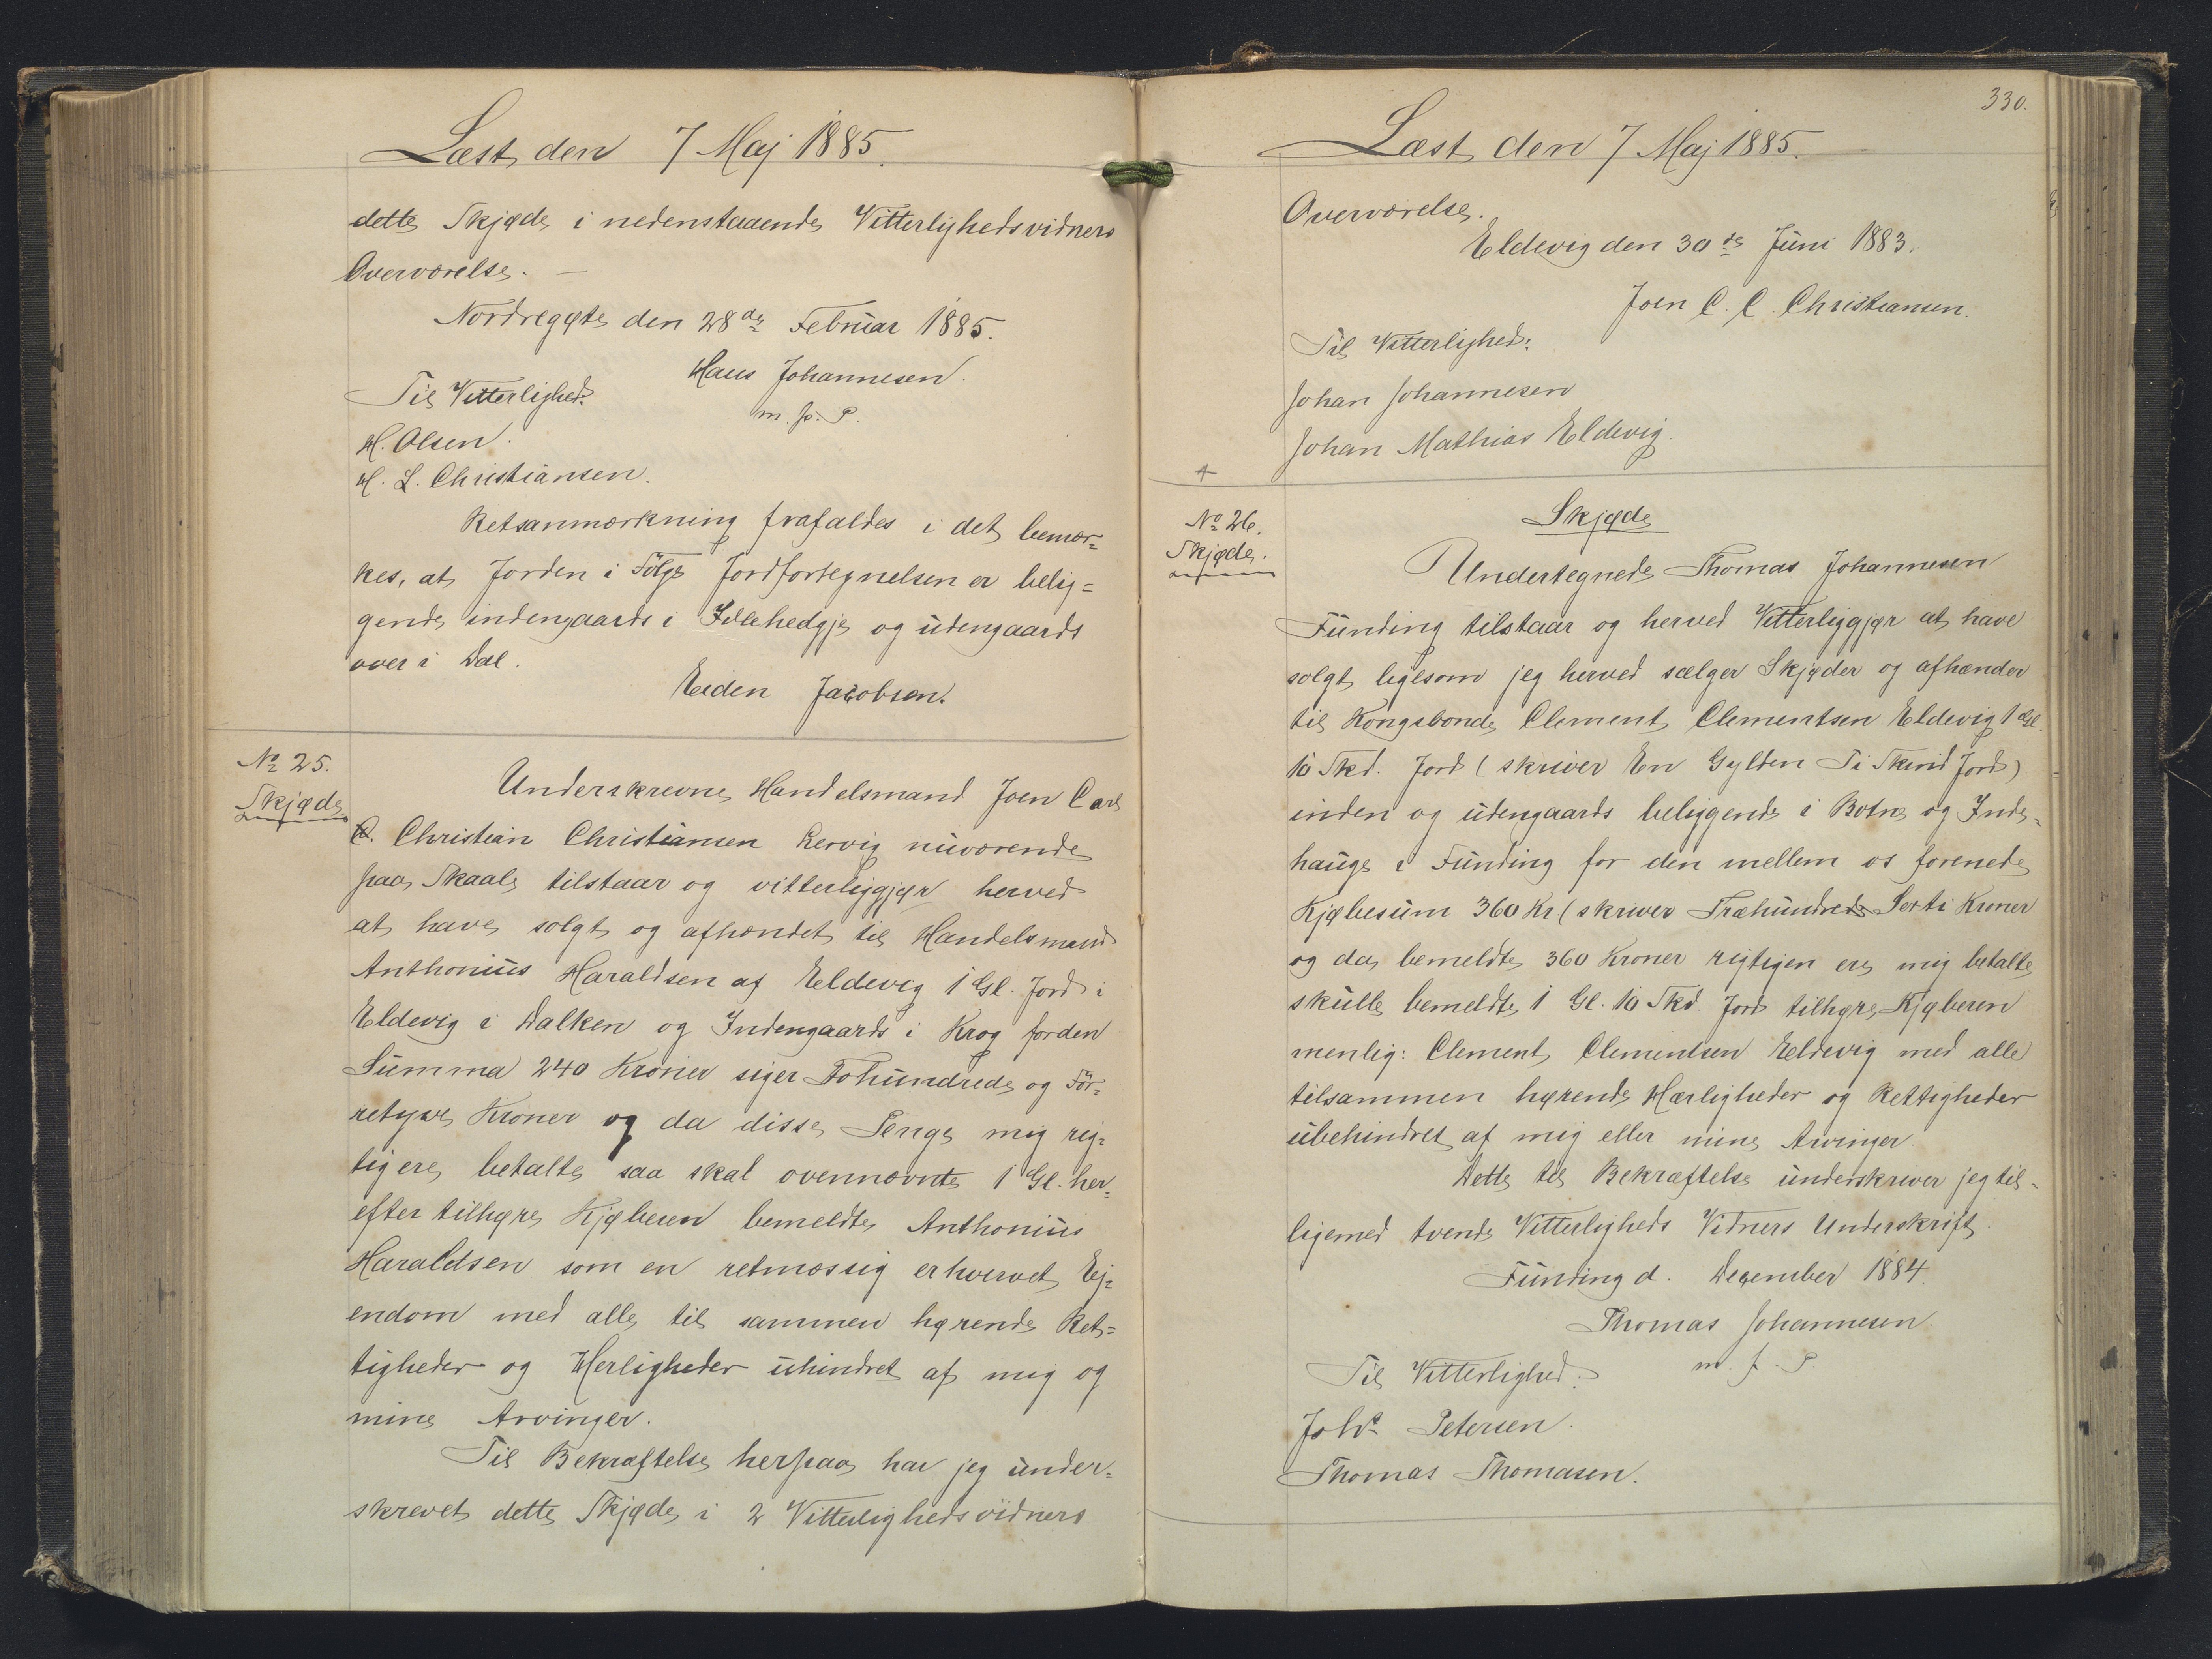 Læst den 7 Maj 1885.
dette Skjøde i nedenstaaende Vitterlighedsvidners
Overværelse. —
Nordregøte den 28de Februar 1885.
Hans Johannesen.
Til Vitterlighed:
m. p. P.
H. Olsen.
H. L. Christiansen.
Retsanmærkning frafaldes i det bemær=
kes, at Jorden i Følge Jordfortegnelsen er belig=
gende indengaards i Illehedgje og udengaards
over i Dal.
Eiden Jacobsen.
No 25.
Skjøde
Underskrevne Handelsmand Joen Carl
C. Christian Christiansen Lervig nuværende
paa Skaale tilstaar og vitterliggjør herved
at have solgt og afhændet til Handelsmand
Anthonius Haraldsen af Eldevig 1 Gl. Jord i
Eldevig i Dalken og Indengaards i Krog forden
Summa 240 Kroner siger Tohundrede og För=
retyve Kroner og da disse Penge mig rig=
tig ere betalte saa skal ovennævnte 1 Gl. her=
efter tilhøre Kjøberen bemeldte Anthonius
Haraldsen som en retmæssig erhvervet Ej=
endom med alle til sammen hørende Ret=
tigheder og Herligheder uhindret af mig og
mine Arvinger.
Til Bekræftelse herpaa har jeg under=
skrevet dette Skjøde i 2 Vitterlighedsvidners
330.
Læst den 7 Maj 1885.
Overværelse.
Eldevig den 30te Juni 1883.
Joen C. C. Christiansen.
Til Vitterlighed:
Johan Johannesen
Johan Mathias Eldevig.
No 26.
Skjøde.
Skjøde
Undertegnede Thomas Johannesen
Funding tilstaar og herved Vitterliggjør at have
solgt ligesom jeg herved sælger Skjøder og afhænder
til Kongsbonde Clement Clementsen Eldevig 1 Gl.
10 Skd. Jord (skriver En Gylden Ti Skind Jord)
inden og udengaards beliggende i Botne og Inde=
hauge i Funding for den mellem os forenede
Kjøbesum 360 Kr (skriver Træhundrede Sexti Kroner
og da bemeldte 360 Kroner rigtigen ere mig betalte
skulle bemeldte 1 Gl. 10 Skd. Jord tilhøre Kjøberen
menlig: Clement Clementsen Eldevig med alle
tilsammen hørende Hærligheder og Rettigheder
ubehindret af mig eller mine Arvinger.
Dette til Bekræftelse underskriver jeg til=
ligemed tvende Vitterligheds Vidners Underskrift.
Funding d. December 1884.
Thomas Johannesen
Til Vitterlighed:
m. f. P.
Johs Petersen.
Thomas Thomasen.